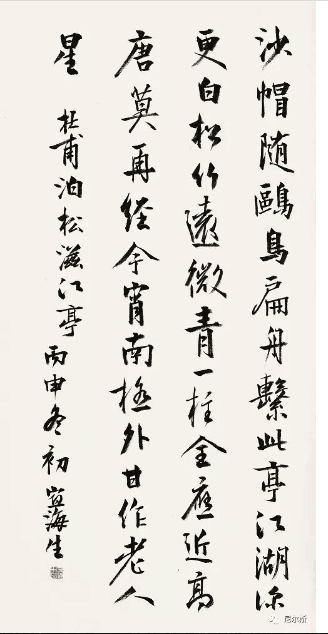 沙帽随鷗鳥扁舟繫此亭江湖深
更白松竹遠微青一柱全應近高
唐莫再經今宵南極外甘作老人
星 杜甫泊松滋江亭 丙申冬初 海生